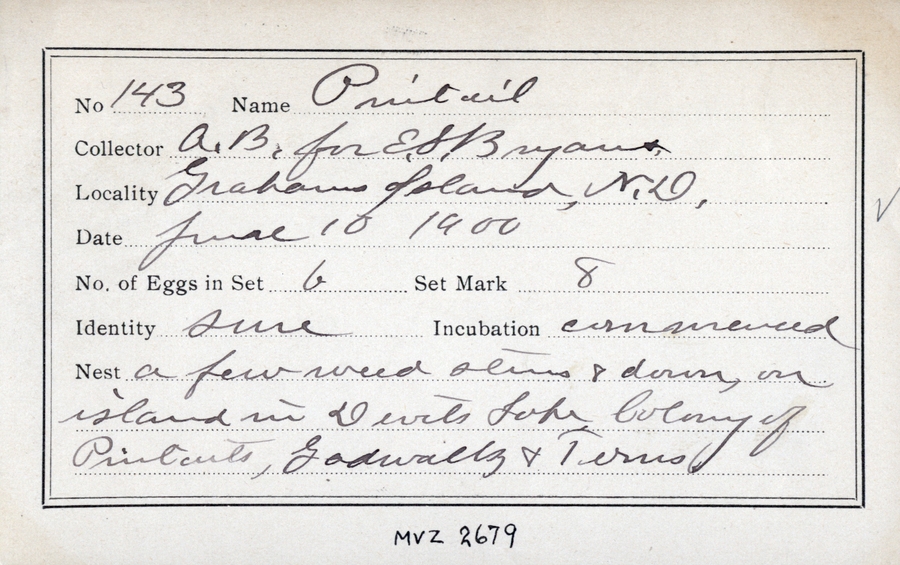 No 143 Name Pintail
Collector A.B. for E.S. Bryant
Locality Grahams Island, N.D.
Date June 10 1900
No. of Eggs in Set 6 Set Mark 8
Identity sure Incubation commenced
Nest a few weed stems & down, on
island in Devils Lake Colony of
Pintails, Gadwalls & Terns.
MVZ 2679